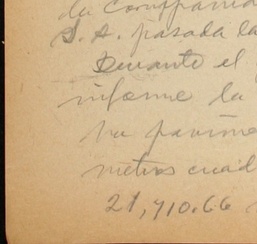 de Compañía
S. A. pasada la
Durante el
informe la
ha pavime
metros cuad
21,910.66